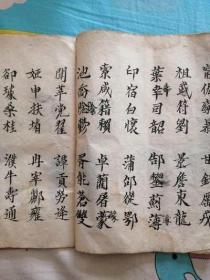 欒暴 甘鈄厲戎
祖武符劉 景詹束龍
葉幸司韶 郜黎薊薄
印宿白懷 蒲邰從鄂
咸籍賴 卓藺屠蒙
池喬陰鬱 胥能蒼雙
聞莘党翟 譚貢勞逄
姬申扶堵 冉宰酈雍
卻璩桑桂 濮牛壽通